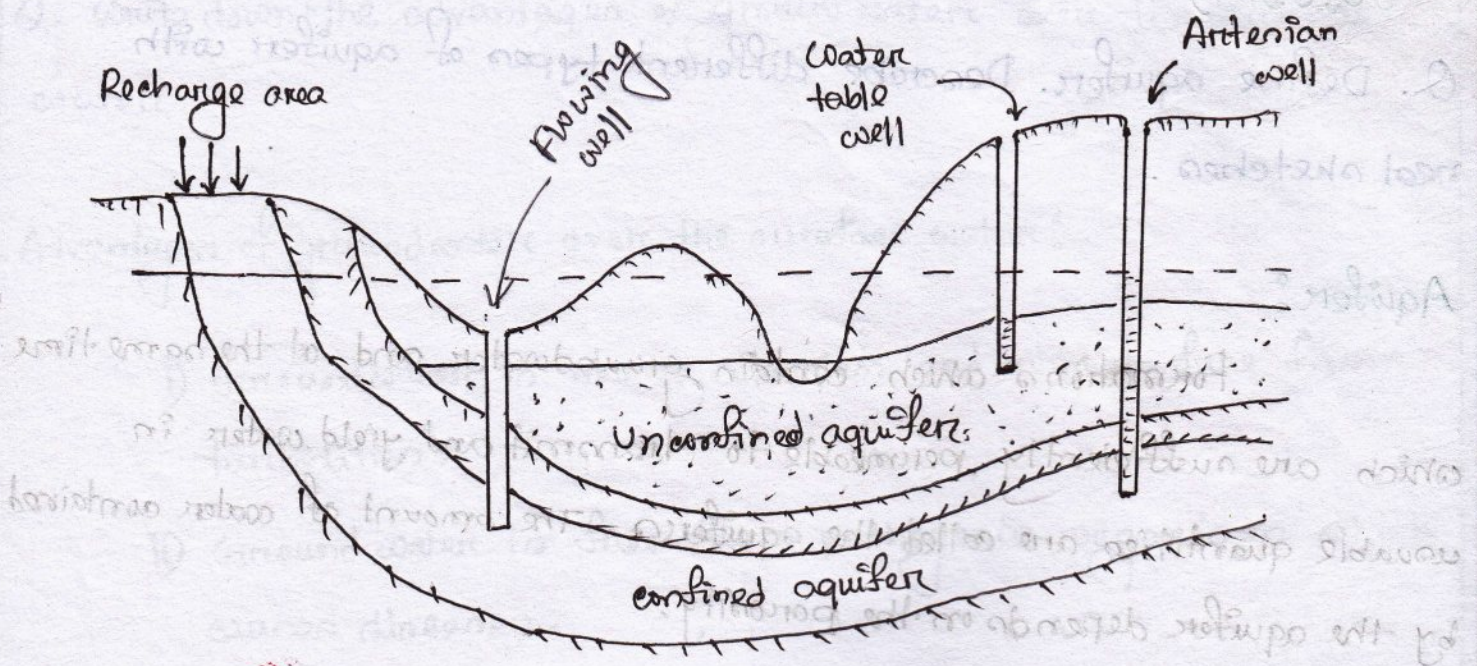 Recharge area
Flowing
well
Water
table
well
Artesian
well
Unconfined aquifer
confined aquifer